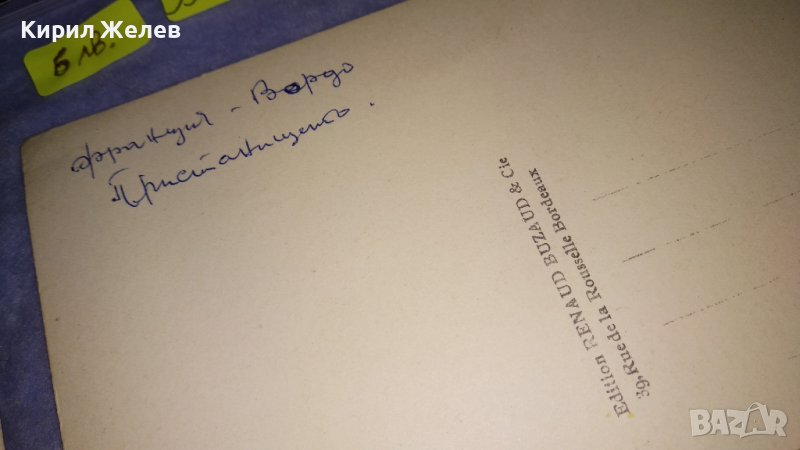 Кирил Желев
5 лв.
Франция - Бордо
Пристанището.
Edition RENAUD BUZAUD & Cie
39, Rue de la Rousselle Bordeaux
BAZAR